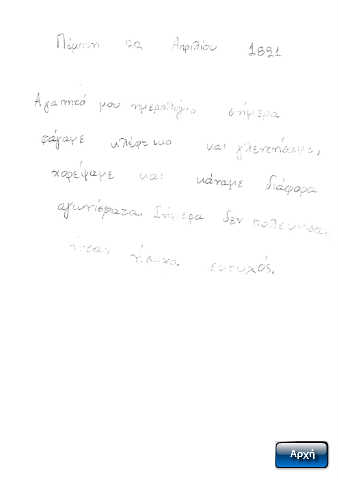 Πέμπτη 22 Απριλίου 1821
Αγαπητό μου ημερολόγιο σήμερα
φάγαμε κλέφτικο και γλεντήσαμε,
χορέψαμε και κάναμε διάφορα
αγωνίσματα. Σήμερα δεν πολεμησα,
ήταν ήσυχα. ευτυχός.
Αρχή